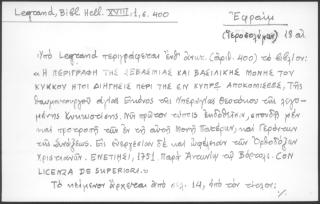 Legrand, Bibl. Hell. XVIII:1, σ. 400
Ἐφραὶμ
(Ἱεροσολύμων) 18 αἰ.
Ὑπὸ Legrand περιγράφεται ἐνθ' ἀνωτ. (ἀριθ. 400) τὸ βιβλίον:
«Η ΠΕΡΙΓΡΑΦΗ ΤΗΣ ΣΕΒΑΣΜΙΑΣ ΚΑΙ ΒΑΣΙΛΙΚΗΣ ΜΟΝΗΣ ΤΟΥ
ΚΥΚΚΟΥ ΗΤΟΙ ΔΙΗΓΗΣΙΣ ΠΕΡΙ ΤΗΣ ΕΝ ΚΥΠΡῼ ΑΠΟΚΟΜΙΣΕΩΣ, Τῆς
θαυματουργοῦ ἁγίας Εἰκόνος τῆς Ὑπεραγίας Θεοτόκου τῆς λεγο-
μένης Κυκκωτίσσης. Νῦν πρῶτον τύποις ἐκδοθεῖσα, σπουδῇ μὲν
καὶ προτροπῇ τῶν ἐν τῇ αὐτῇ Μονῇ Πατέρων, καὶ Γερόντων
τῆς Συνάξεως. Εἰς εὐεργεσίαν δὲ καὶ ὠφέλειαν τῶν Ὀρθοδόξων
Χριστιανῶν. ΕΝΕΤΙΗΣΙ, 1751. Παρὰ Ἀντωνίῳ τῷ Βόρτολι. CON
LICENZA DE SUPERIORI.»
Τὸ κείμενον ἄρχεται ἀπὸ σελ. 14, ὑπὸ τὸν τίτλον:
./.